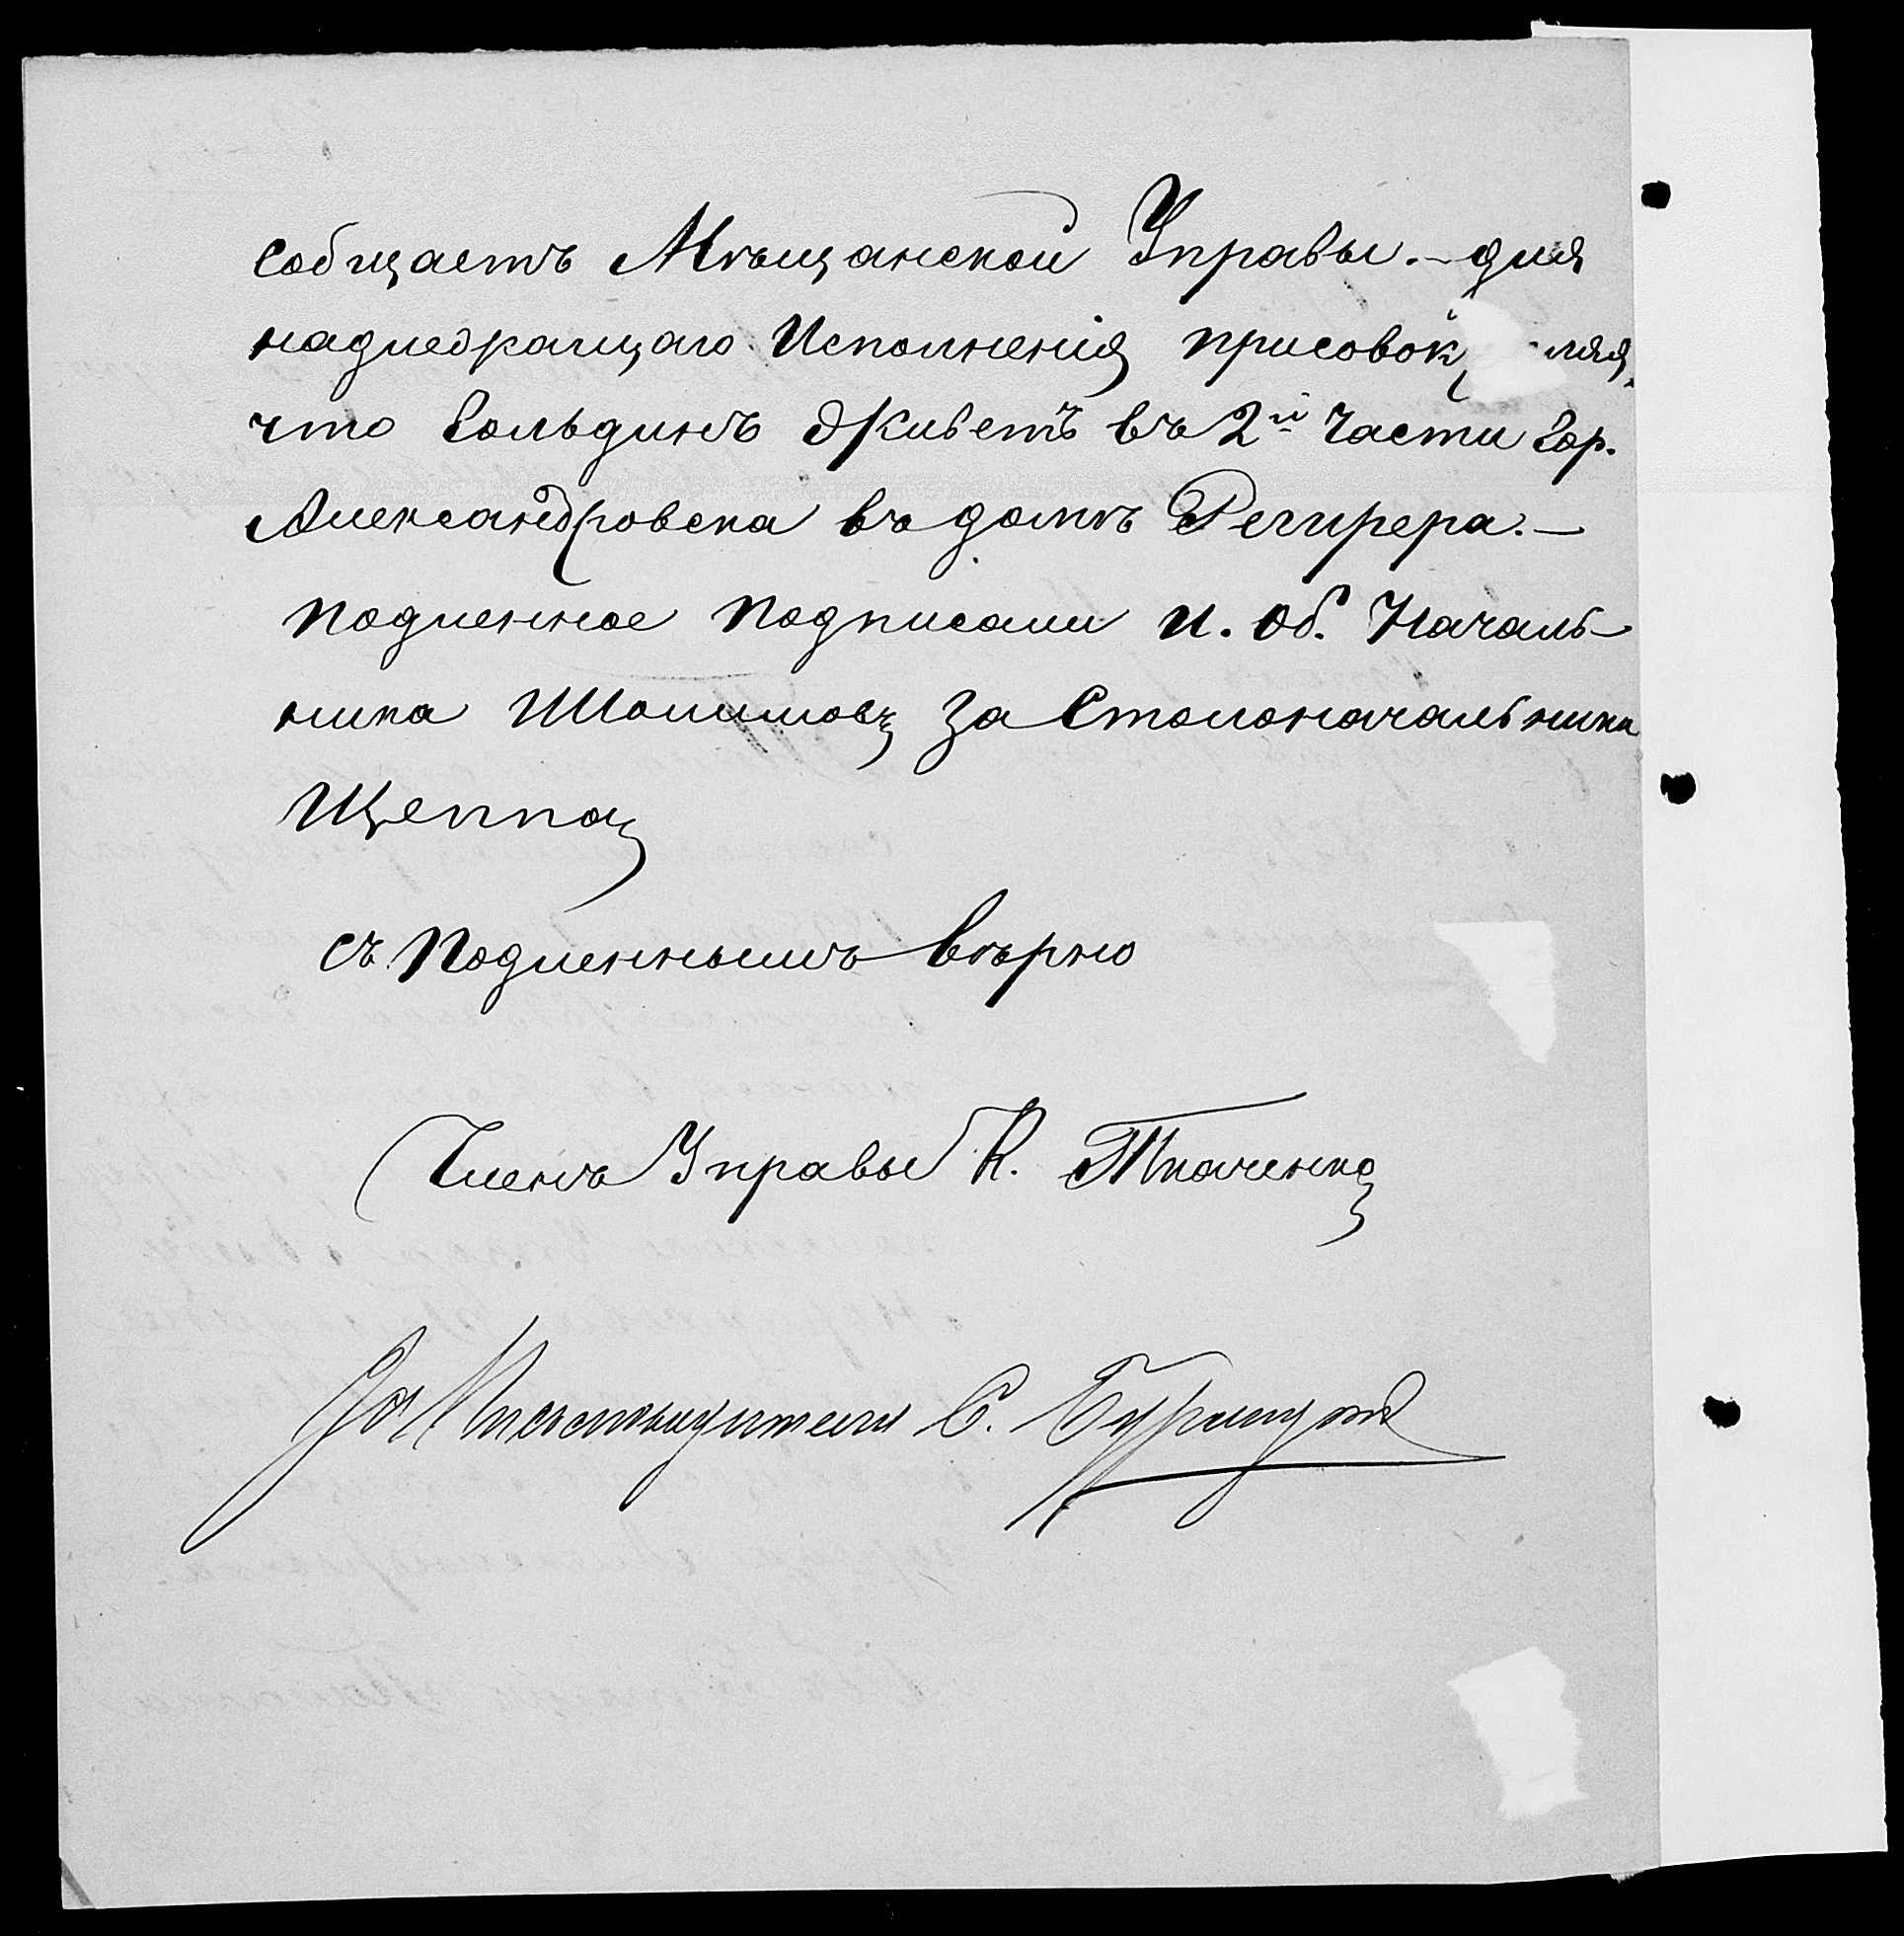 сообщаетъ Мѣщанской Управы. — для
надлежащаго Исполненія присовок ляя,
что Гольдинъ Живетъ въ 2й Части Гор.
Александровска въ домѣ
подленное подписали И. Об. Началь-
ника За Столоначальника
Щепка
съ Подленнымъ вѣрно
Членъ Управы К. Ткаченко
За С.